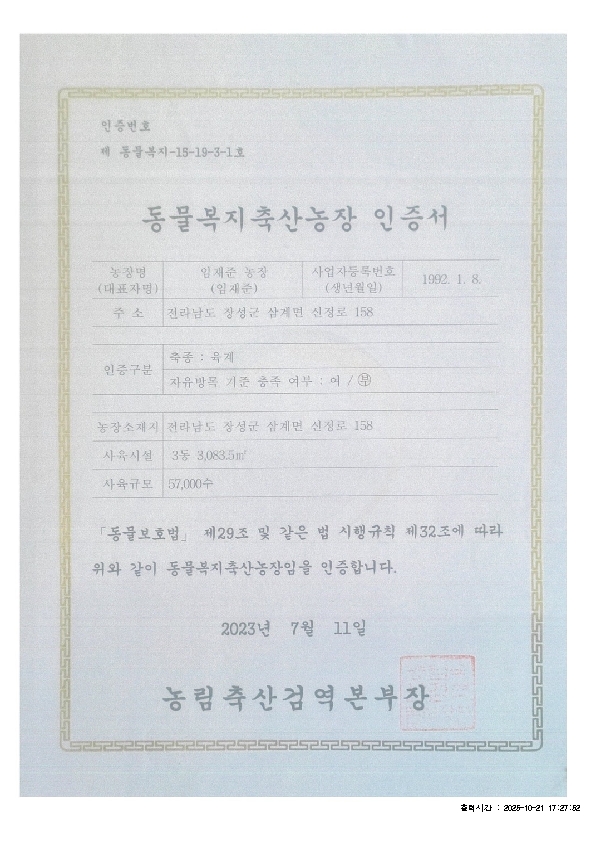 인증번호
제 동물복지-15-19-3-1호
동물복지축산농장 인증서
농장명 (대표자명) 임재준 농장 (임재준) 사업자등록번호 (생년월일) 1992. 1. 8.
주 소 전라남도 장성군 삼계면 신정로 158
인증구분 축종 : 육계
자유방목 기준 충족 여부 : 여 / ㊀부
농장소재지 전라남도 장성군 삼계면 신정로 158
사육시설 3동 3,083.5㎡
사육규모 57,000수
「동물보호법」 제29조 및 같은 법 시행규칙 제32조에 따라
위와 같이 동물복지축산농장임을 인증합니다.
2023년 7월 11일
농림축산검역본부장
출력시간 : 2025-10-21 17:27:52